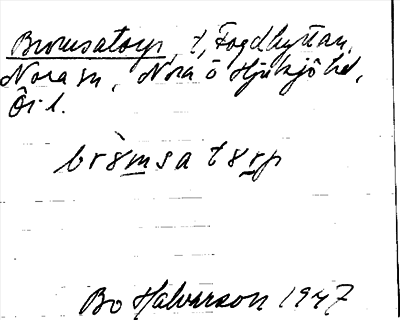 Bromsatorp, t, Fogdhyttan,
Nora sn, Nora o Hjulsjö hd,
Ör l.
brò̀msatorp
Bo Halvarson 1947